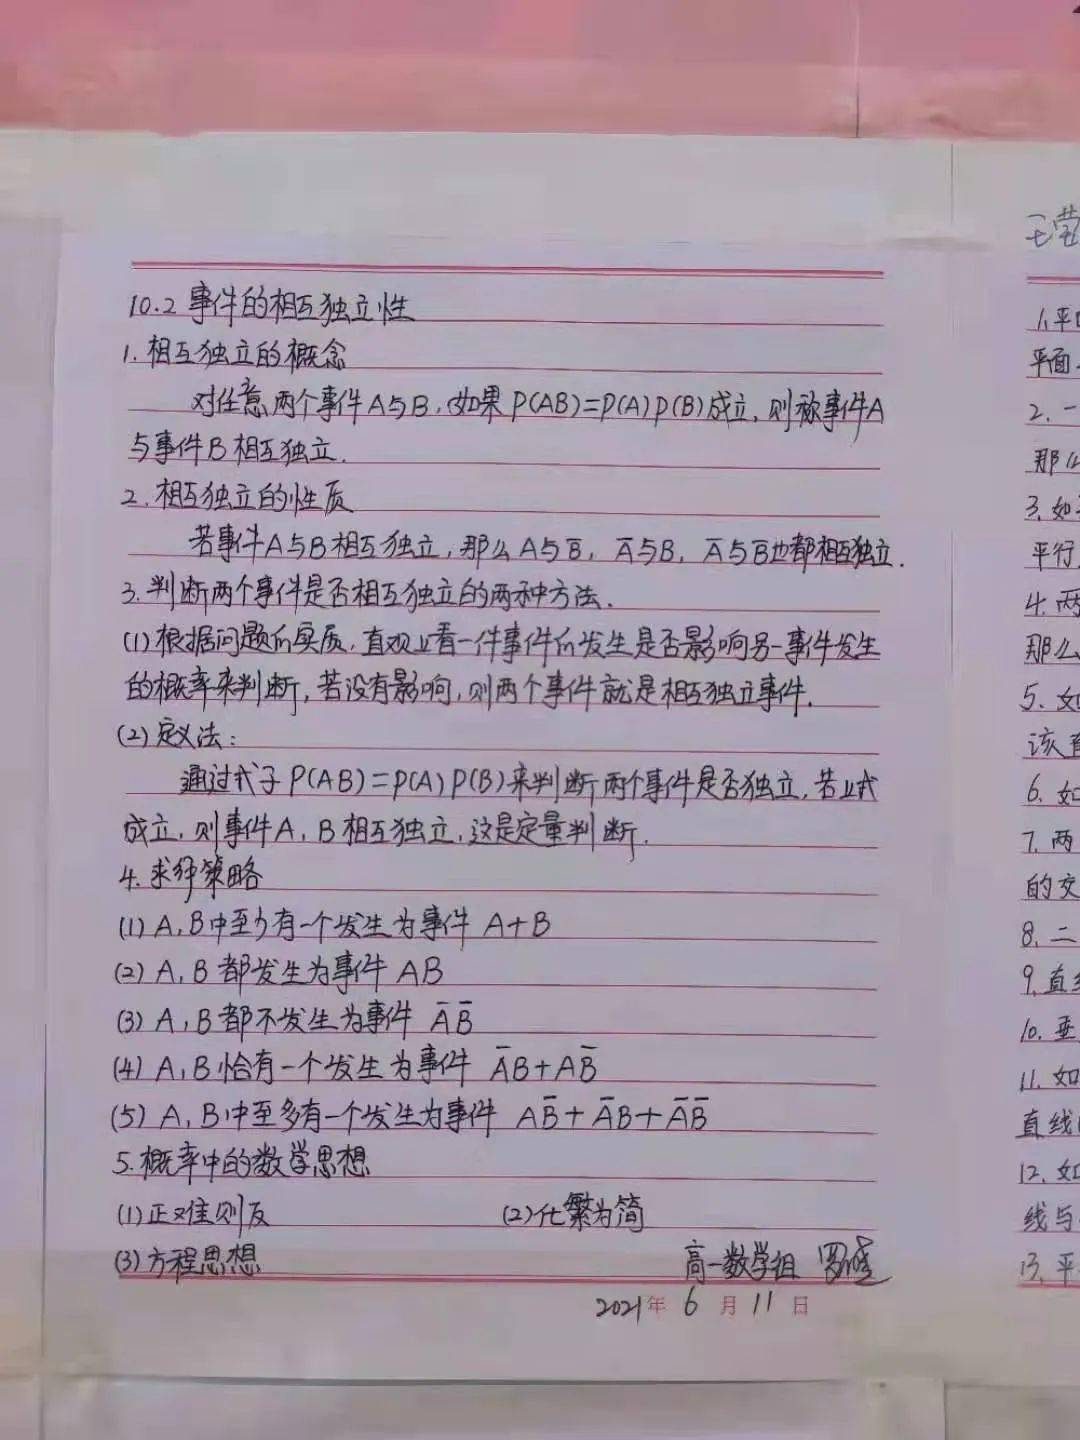 10.2 事件的相互独立性
1. 相互独立的概念
对任意两个事件A与B,如果P(AB)=P(A)P(B)成立,则称事件A
与事件B相互独立.
2. 相互独立的性质
若事件A与B相互独立,那么A与B̄, Ā与B, Ā与B̄也都相互独立.
3. 判断两个事件是否相互独立的两种方法.
(1) 根据问题的实质,直观上看一件事件的发生是否影响另一事件发生
的概率来判断,若没有影响,则两个事件就是相互独立事件.
(2) 定义法:
通过式子P(AB)=P(A)P(B)来判断两个事件是否独立,若上式
成立,则事件A,B相互独立,这是定量判断.
4. 求解策略
(1) A,B中至少有一个发生为事件 A+B
(2) A,B都发生为事件 AB
(3) A,B都不发生为事件 ĀB̄
(4) A,B恰有一个发生为事件 ĀB+AB̄
(5) A,B中至多有一个发生为事件 AB̄+ĀB+ĀB̄
5. 概率中的数学思想
(1) 正难则反 (2) 化繁为简
(3) 方程思想
高一数学组 罗
2021年 6月 11日
1. 平
平面
2. 一
那么
3. 如
平行
4. 两
那么
5. 如
该直
6. 如
7. 两
的交
8. 二
9. 直线
10. 垂
11. 如
直线
12. 如
线与
13. 平